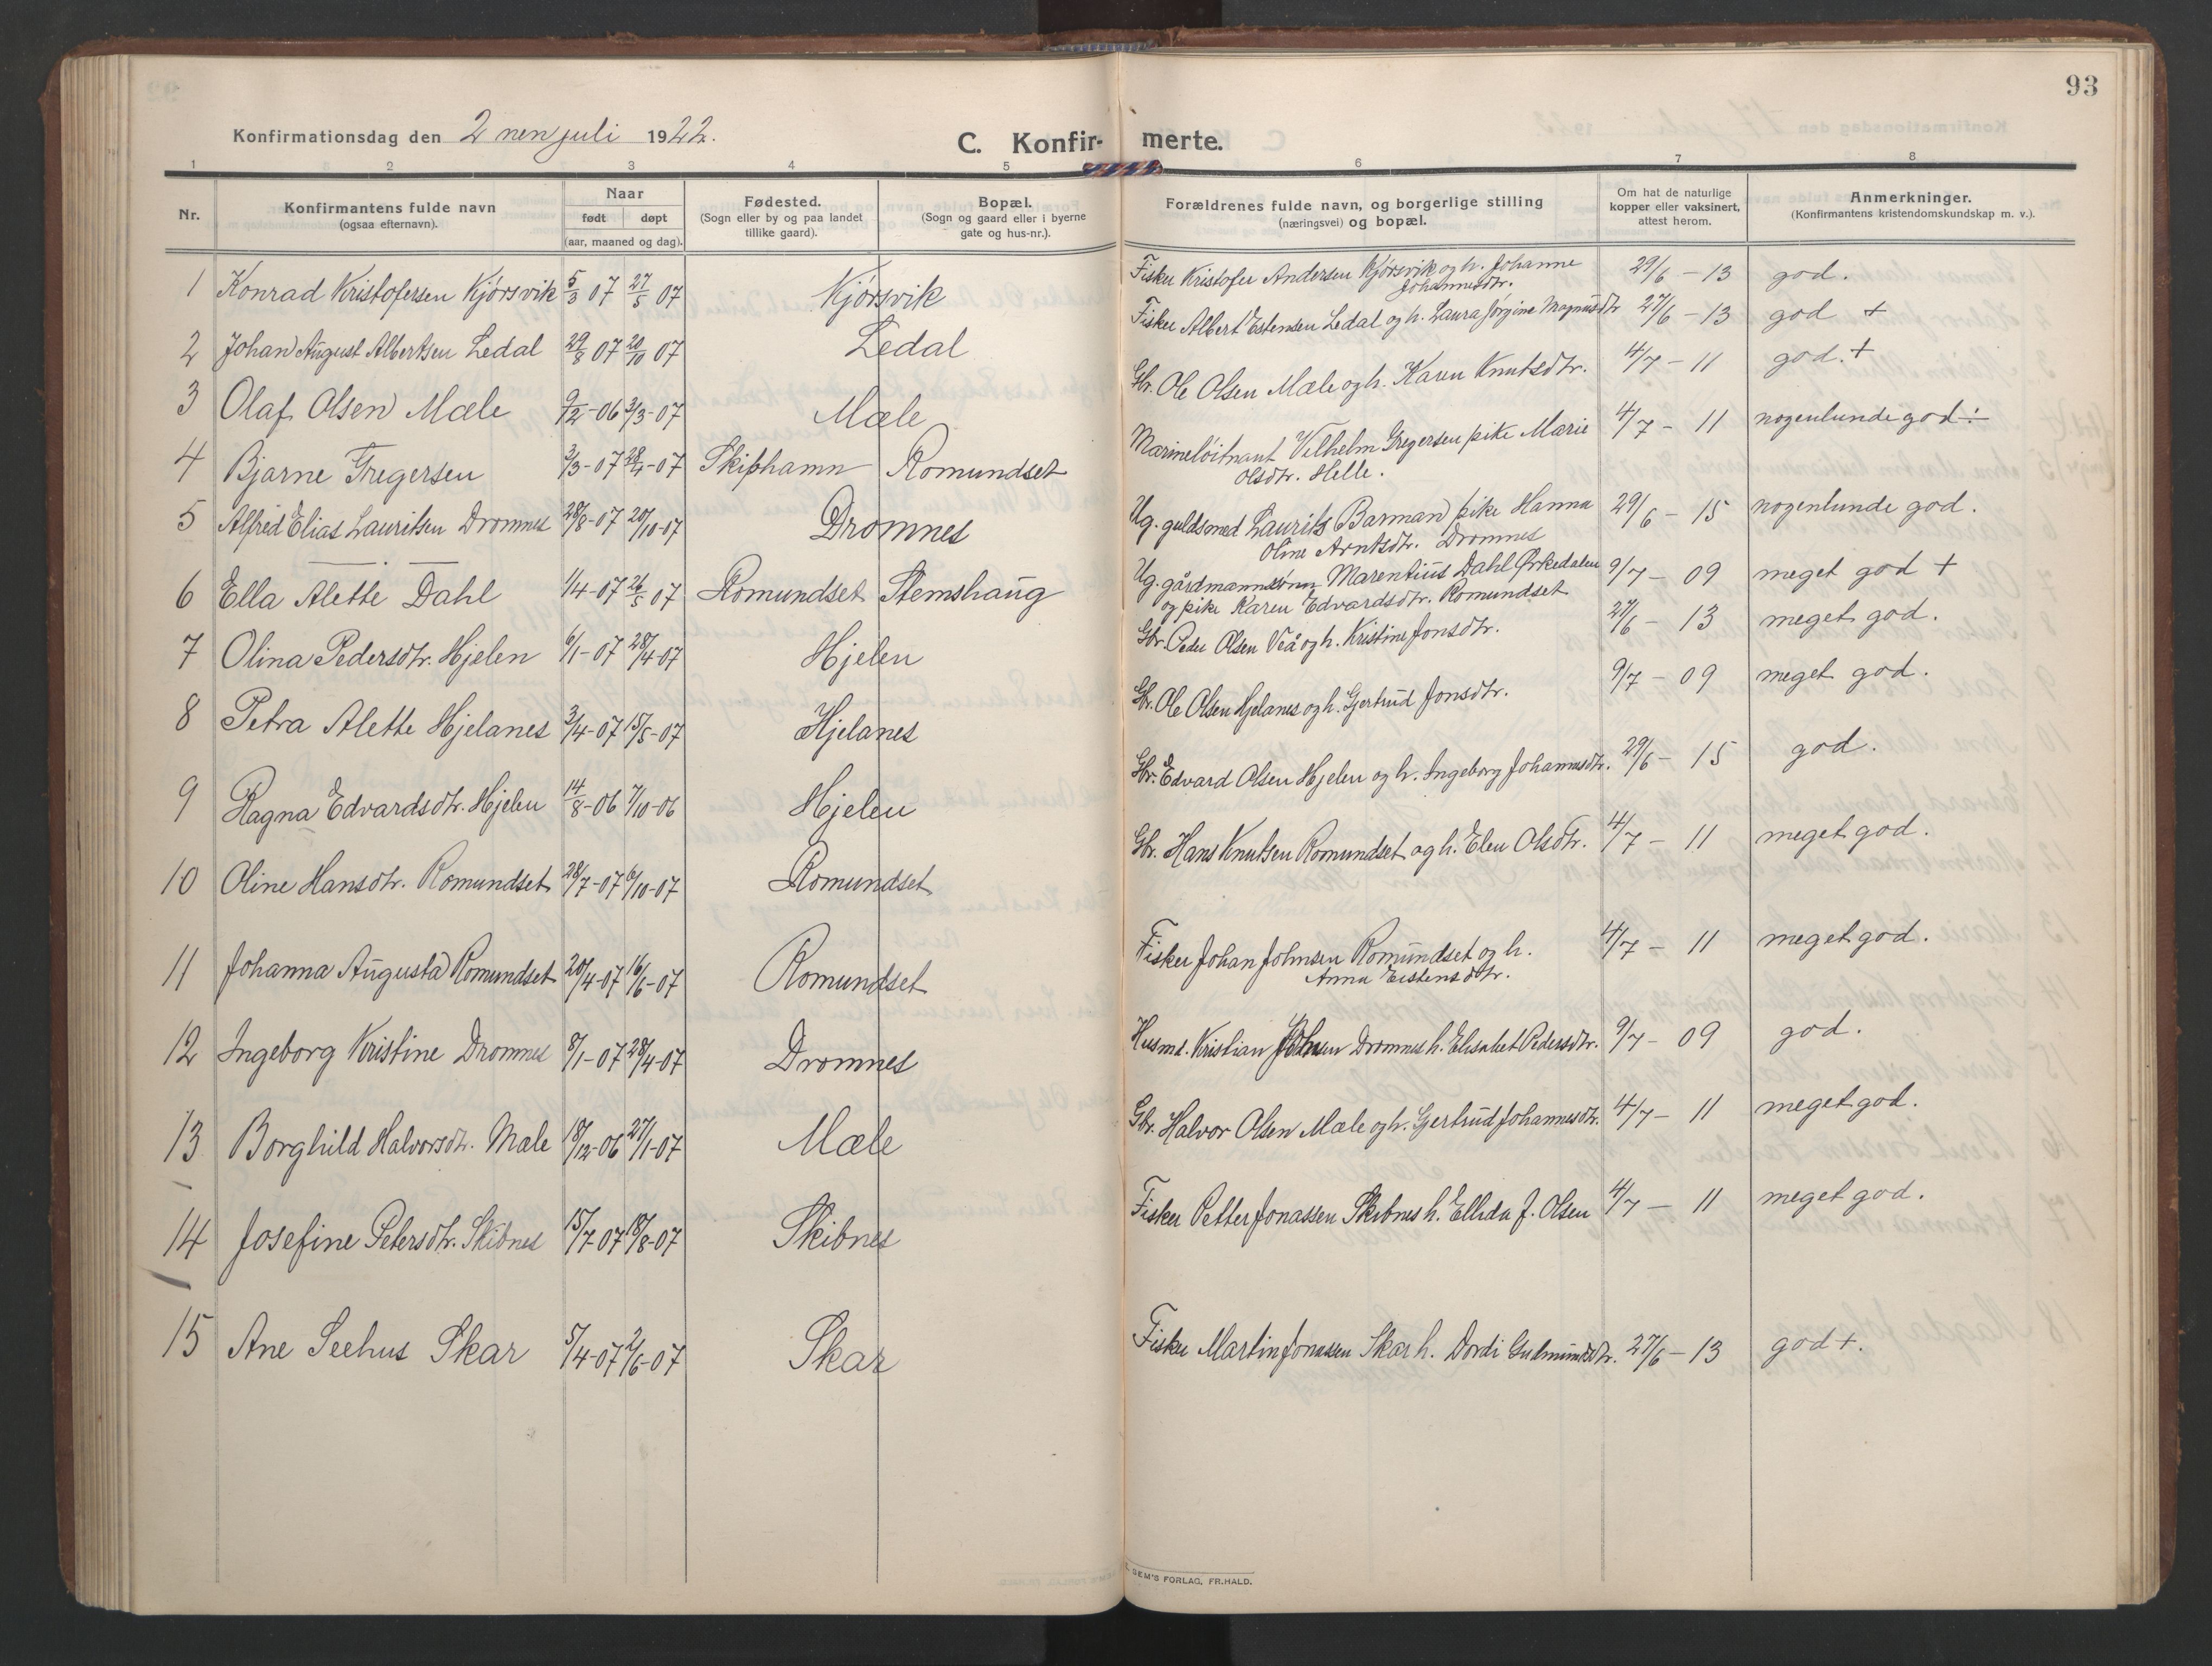 93
Konfirmationsdag den 2 nen juli 1922.
C. Konfir- merte.
1 2 3 4 5 6 7 8
Nr. Konfirmantens fulde navn (ogsaa efternavn). Naar født døpt (aar, maaned og dag). Fødested. (Sogn eller by og paa landet tillike gaard). Bopæl. (Sogn og gaard eller i byerne gate og hus-nr.). Forældrenes fulde navn, og borgerlige stilling (næringsvei) og bopæl. Om hat de naturlige kopper eller vaksinert, attest herom. Anmerkninger. (Konfirmantens kristendomskundskap m. v.).
1 Konrad Kristofersen Kjørsvik 5/3 07 27/5 07 Kjørsvik Fisker Kristofer Andersen Kjørsvik og h. Johanne Johannesdtr. 29/6 - 13 god.
2 Johan August Albertsen Ledal 29/8 07 20/10 07 Ledal Fisker Albert Estensen Ledal og h. Laura Jørgine Magnusdtr 27/6 - 13 god +
3 Olaf Olsen Mæle 9/12-06 3/3-07 Mæle Gbr. Ole Olsen Mæle og h. Karen Knutsdtr. 4/7 - 11 god. +
4 Bjarne Gregersen 3/3-07 28/4-07 Skiphamn Romundset Marineløitnant Vilhelm Gregersen pike Marie Olsdtr. Helle. 4/7 - 11 nogenlunde god ÷
5 Alfred Elias Lauritsen Dromnes 28/8-07 20/10-07 Dromnes Ug. guldsmed Laurits Barman pike Hanna Oline Arntsdtr. Dromnes 29/6 - 15 nogenlunde god.
6 Ella Alette Dahl 1/4-07 26/5 07 Romundset Stemshaug Ug. gårdmannssønn Marentius Dahl Ørkedalen og pike Karen Edvardsdtr. Romundset 9/7 - 09 meget god +
7 Olina Pedersdtr. Hjelen 6/1-07 28/4-07 Hjelen Gbr. Peder Olsen Veå og h. Kristine Jonsdtr. 27/6 - 13 meget god.
8 Petra Alette Hjelanes 3/4-07 15/5-07 Hjelanes Gbr. Ole Olsen Hjelanes og h. Gjertrud Jonsdtr. 9/7 - 09 meget god.
9 Ragna Edvardsdtr. Hjelen 14/8-06 7/10-06 Hjelen Gbr. Edvard Olsen Hjelen og h. Ingeborg Johannesdtr. 29/6 - 15 god.
10 Oline Hansdtr. Romundset 28/7-07 6/10-07 Romundset Gbr. Hans Knutsen Romundset og h. Elen Olsdtr. 4/7 - 11 meget god.
11 Johanna Augusta Romundset 20/4-07 16/6-07 Romundset Fisker Johan Johnsen Romundset og h. Anna Eistensdtr. 4/7 - 11 meget god.
12 Ingeborg Kristine Dromnes 8/1-07 28/4-07 Dromnes Husmd. Kristian Johnsen Dromnes h. Elisabet Pedersdtr. 9/7 - 09 god.
13 Borghild Halvorsdtr. Mæle 18/12-06 27/1-07 Mæle Gbr. Halvor Olsen Mæle og h. Gjertrud Johannesdtr. 4/7 - 11 meget god.
14 Josefine Petersdtr. Skibnes 15/7-07 18/8-07 Skibnes Fisker Petter Jonassen Skibnes h. Ellida J. Olsen 4/7 - 11 meget god.
15 Ane Seehus Skar 5/4-07 2/6-07 Skar Fisker Martin Jonassen Skar h. Dordi Gudmundsdtr. 27/6 - 13 god +.
SEM'S FORLAG, FR.HALD.